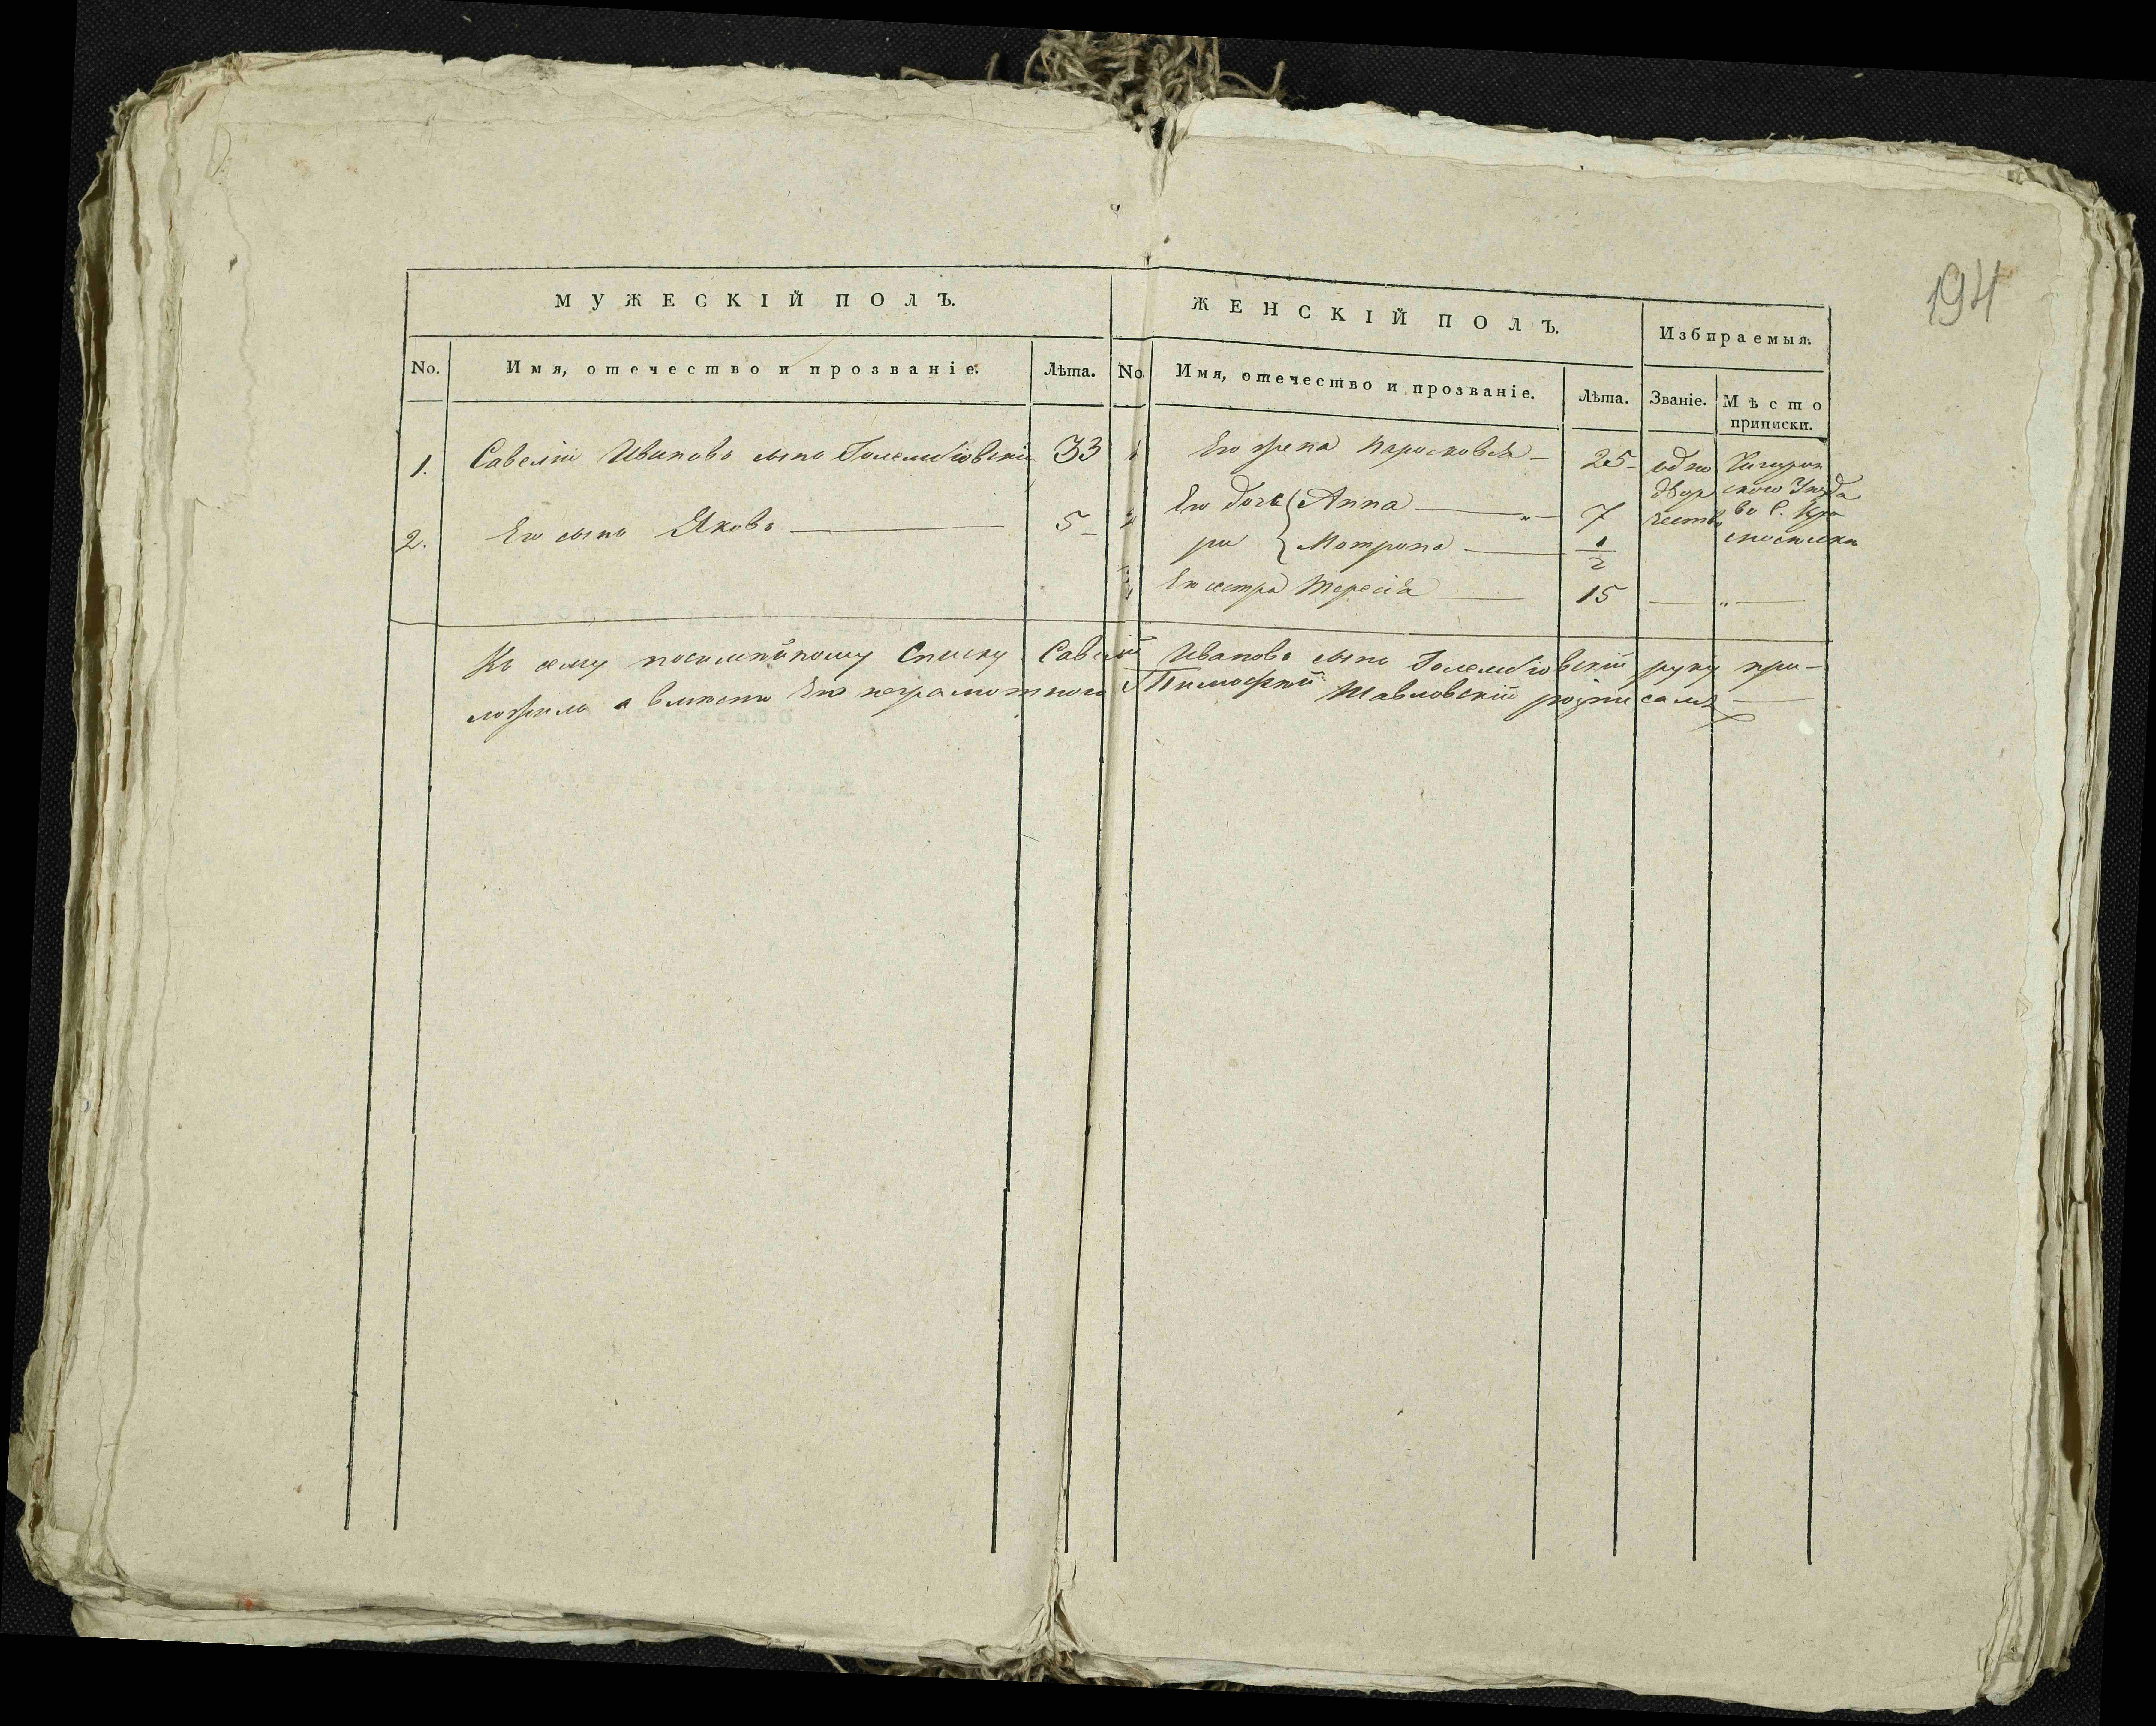 194
МУЖЕСКІЙ ПОЛЪ.
ЖЕНСКІЙ ПОЛЪ.
Избираемыя.
No. Имя, отечество и прозваніе. Лѣта.
No Имя, отечество и прозваніе. Лѣта. Званіе. Мѣсто приписки.
1. Савелій Ивановъ сынъ Голембіовскій 33
2. Его сынъ Яковъ 5
1 Его жена Парасковія 25
одно двор чество
Чигирин скаго Уезда во С.
Его доче ри { Анна 7
{ Мотрона 1/2
Его сестра Тересія 15
Къ сему посемейному Списку Савелій Ивановъ сынъ Голембіовскій руку при-
ложилъ а вместо Его неграмотного Тимофей Шавловскій розписался